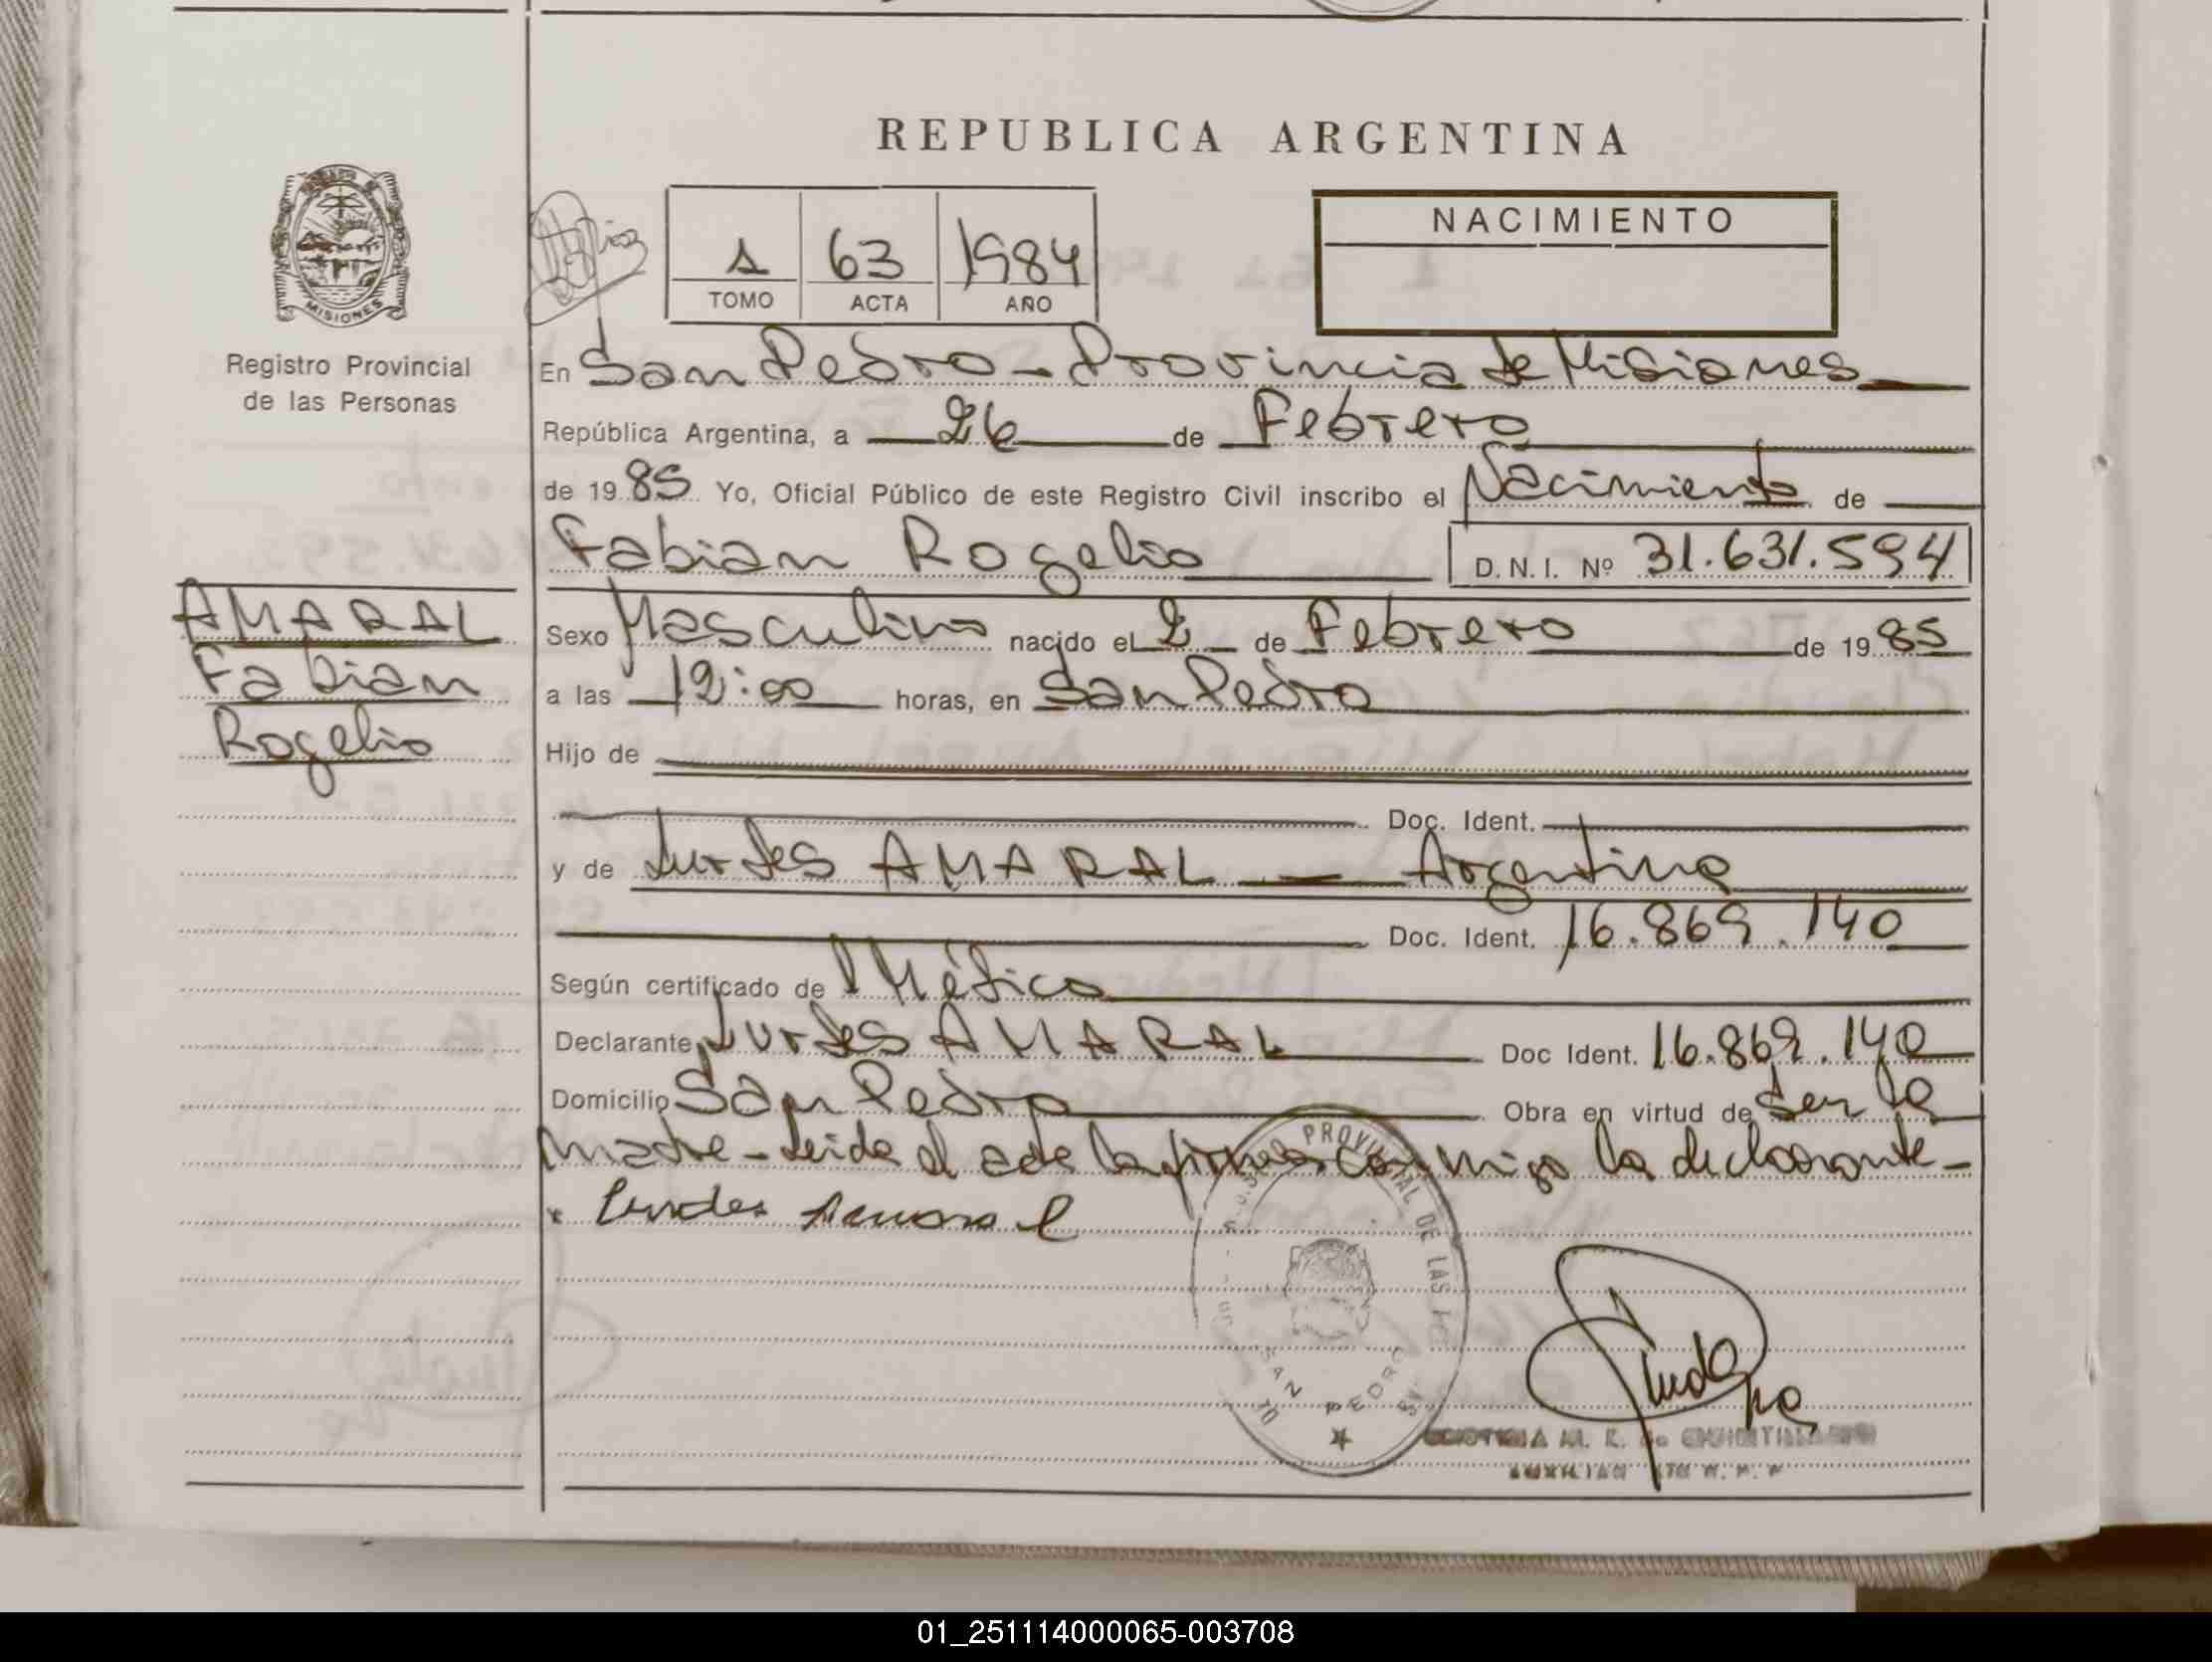 REPUBLICA ARGENTINA
MISIONES
Registro Provincial
de las Personas
1 63 1984
TOMO ACTA AÑO
NACIMIENTO
En San Pedro - Provincia de Misiones
República Argentina, a 26 de Febrero
de 1985 Yo, Oficial Público de este Registro Civil inscribo el Nacimiento de
Fabian Rogelio D.N.I. Nº 31.631.594
AMARAL
Fabian
Rogelio
Sexo Masculino nacido el 2 de Febrero de 1985
a las 12:00 horas, en San Pedro
Hijo de
Doc. Ident.
y de Lurdes AMARAL - Argentina
Doc. Ident. 16.869.140
Según certificado de Médico
Declarante Lurdes AMARAL Doc Ident. 16.869.140
Domicilio San Pedro Obra en virtud de Ser la
madre - Leida el acta la firma conmigo la declarante -
x Lurdes Amaral
PROVINCIAL DE LAS
SAN PEDRO
AUXILIAR
01_251114000065-003708